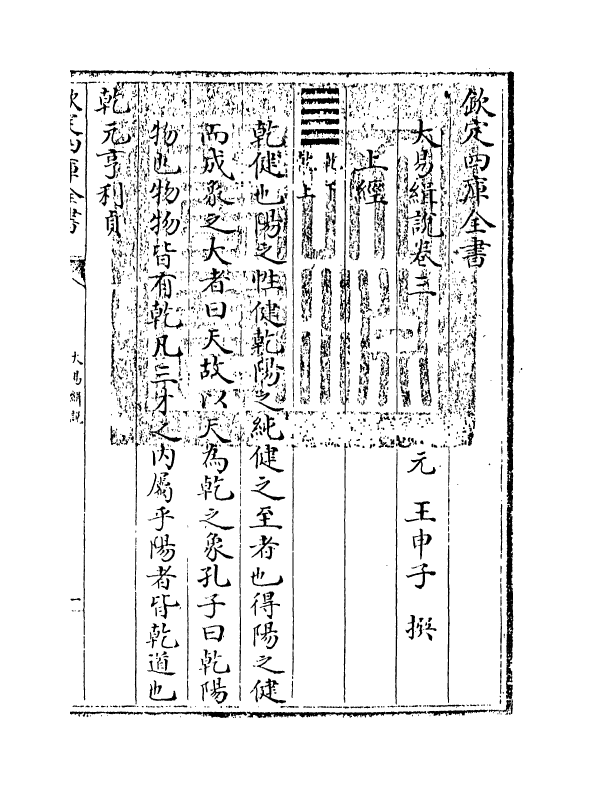 欽定四庫全書
大易緝說卷三
元 王申子 撰
上經
乾下
乾上
乾健也陽之性健乾陽之純健之至者也得陽之健
而成象之大者曰天故以天為乾之象孔子曰乾陽
物也物物皆有乾凡三才之内屬乎陽者皆乾道也
乾元亨利貞
欽定四庫全書
大易緝說
一